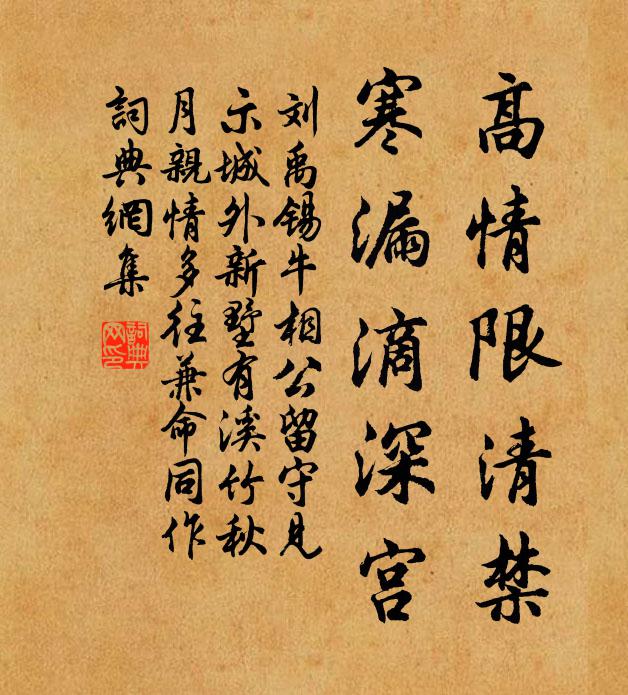 高情限清禁
寒漏滴深宫
刘禹锡牛相公留守见
示城外新墅有溪竹秋
月親情多往兼命同作
詞典網集
詞典
网印